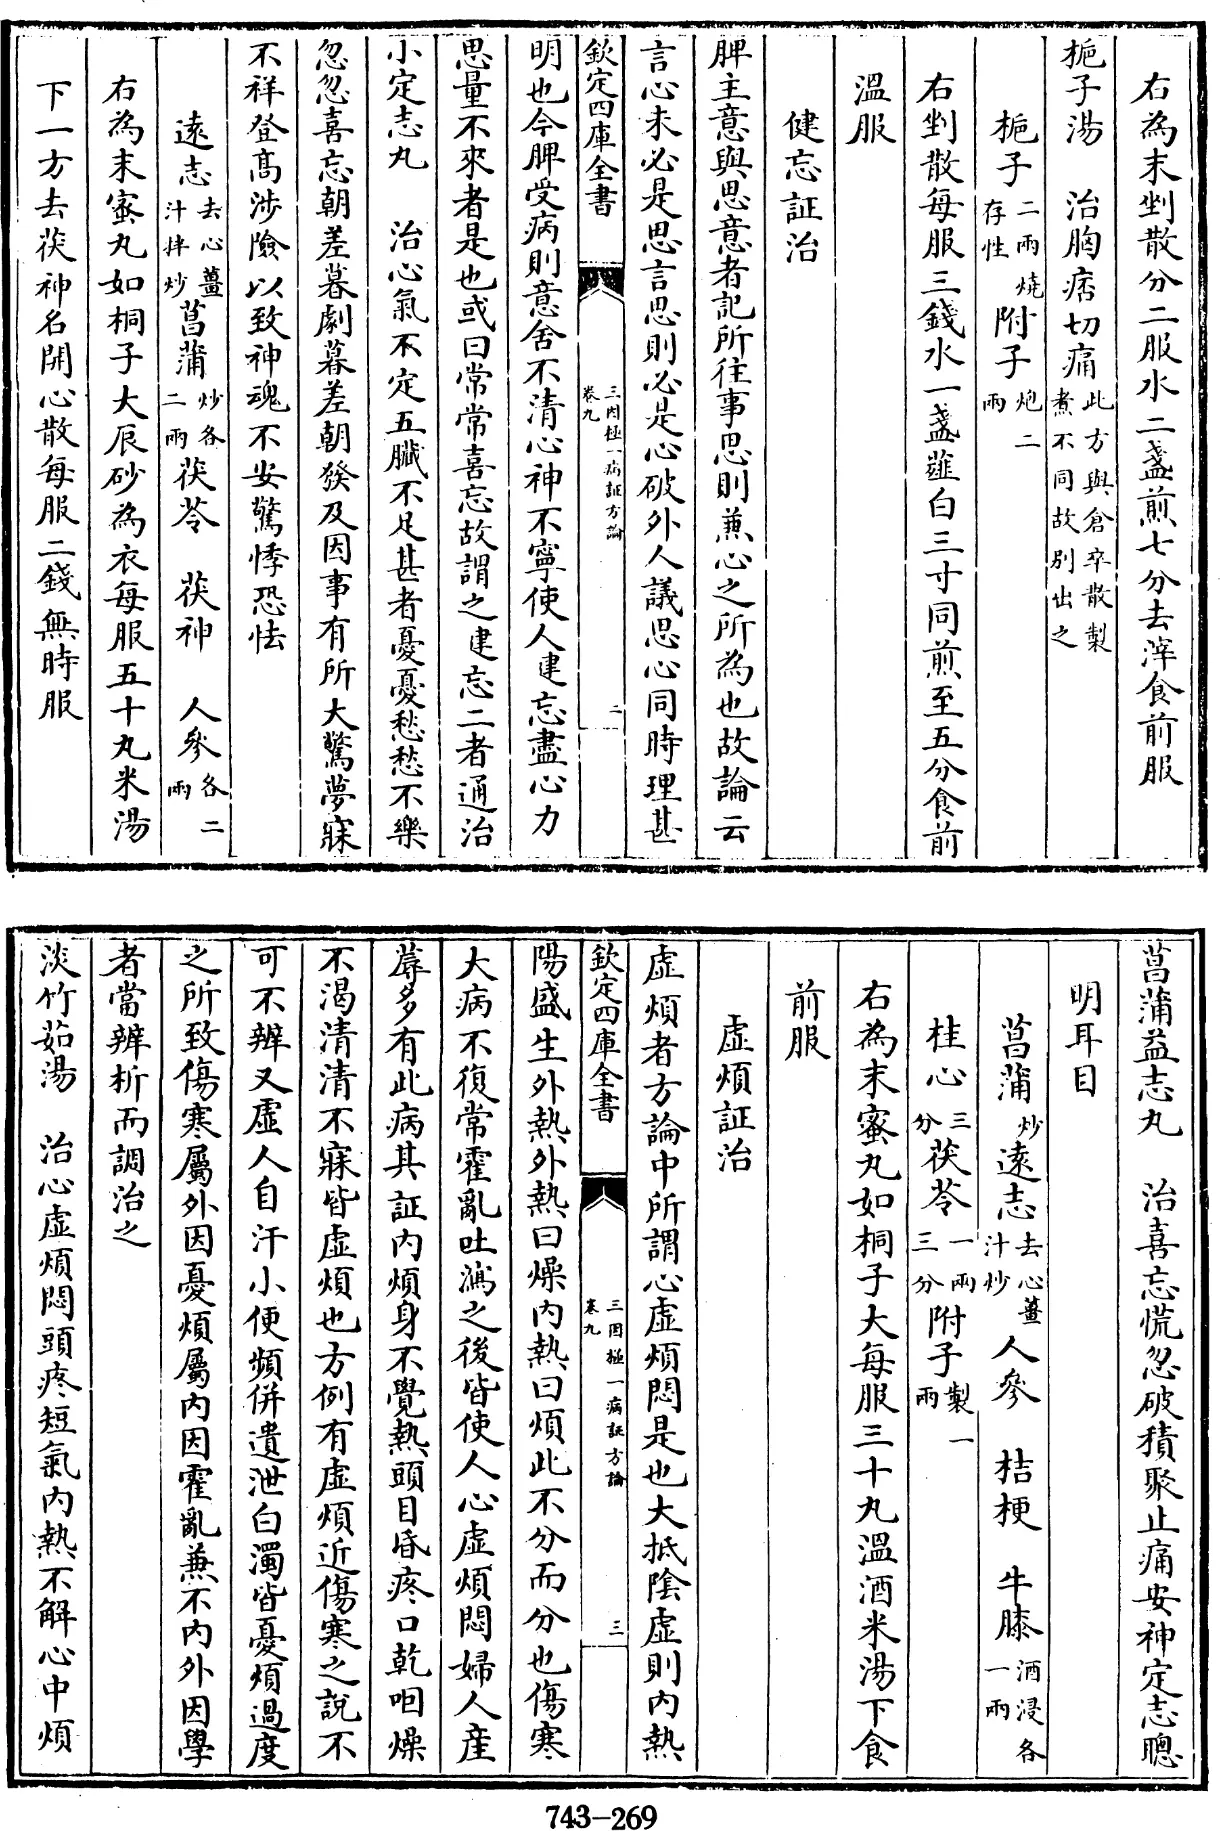 右為末剉散分二服水二盞煎七分去滓食前服
梔子湯　治胸痞切痛此方與倉卒散製煮不同故別出之
梔子二兩燒存性附子炮二兩
右剉散每服三錢水一盞薤白三寸同煎至五分食前
溫服
健忘証治
脾主意與思意者記所往事思則兼心之所為也故論云
言心未必是思言思則必是心破外人議思心同時理甚
欽定四庫全書
三因極一病証方論
卷九
二
明也今脾受病則意舍不清心神不寧使人建忘盡心力
思量不來者是也或曰常常喜忘故謂之建忘二者通治
小定志丸　治心氣不定五臟不足甚者憂憂愁愁不樂
忽忽喜忘朝差暮劇暮差朝發及因事有所大驚夢寐
不祥登高涉險以致神魂不安驚悸恐怯
遠志去心薑汁拌炒菖蒲炒各二兩茯苓　茯神　人參各二兩
右為末蜜丸如桐子大辰砂為衣每服五十丸米湯
下一方去茯神名開心散每服二錢無時服
菖蒲益志丸　治喜忘慌忽破積聚止痛安神定志聰
明耳目
菖蒲炒遠志去心薑汁炒人參　桔梗　牛膝酒浸各一兩
桂心三分茯苓一兩三分附子製一兩
右為末蜜丸如桐子大每服三十丸溫酒米湯下食
前服
虛煩証治
虛煩者方論中所謂心虛煩悶是也大抵陰虛則內熱
欽定四庫全書
三因極一病証方論
卷九
三
陽盛生外熱外熱曰燥內熱曰煩此不分而分也傷寒
大病不復常霍亂吐瀉之後皆使人心虛煩悶婦人產
蓐多有此病其証內煩身不覺熱頭目昏疼口乾咽燥
不渴清清不寐皆虛煩也方例有虛煩近傷寒之說不
可不辨又虛人自汗小便頻併遺泄白濁皆憂煩過度
之所致傷寒屬外因憂煩屬內因霍亂兼不內外因學
者當辨析而調治之
淡竹茹湯　治心虛煩悶頭疼短氣內熱不解心中煩
743-269